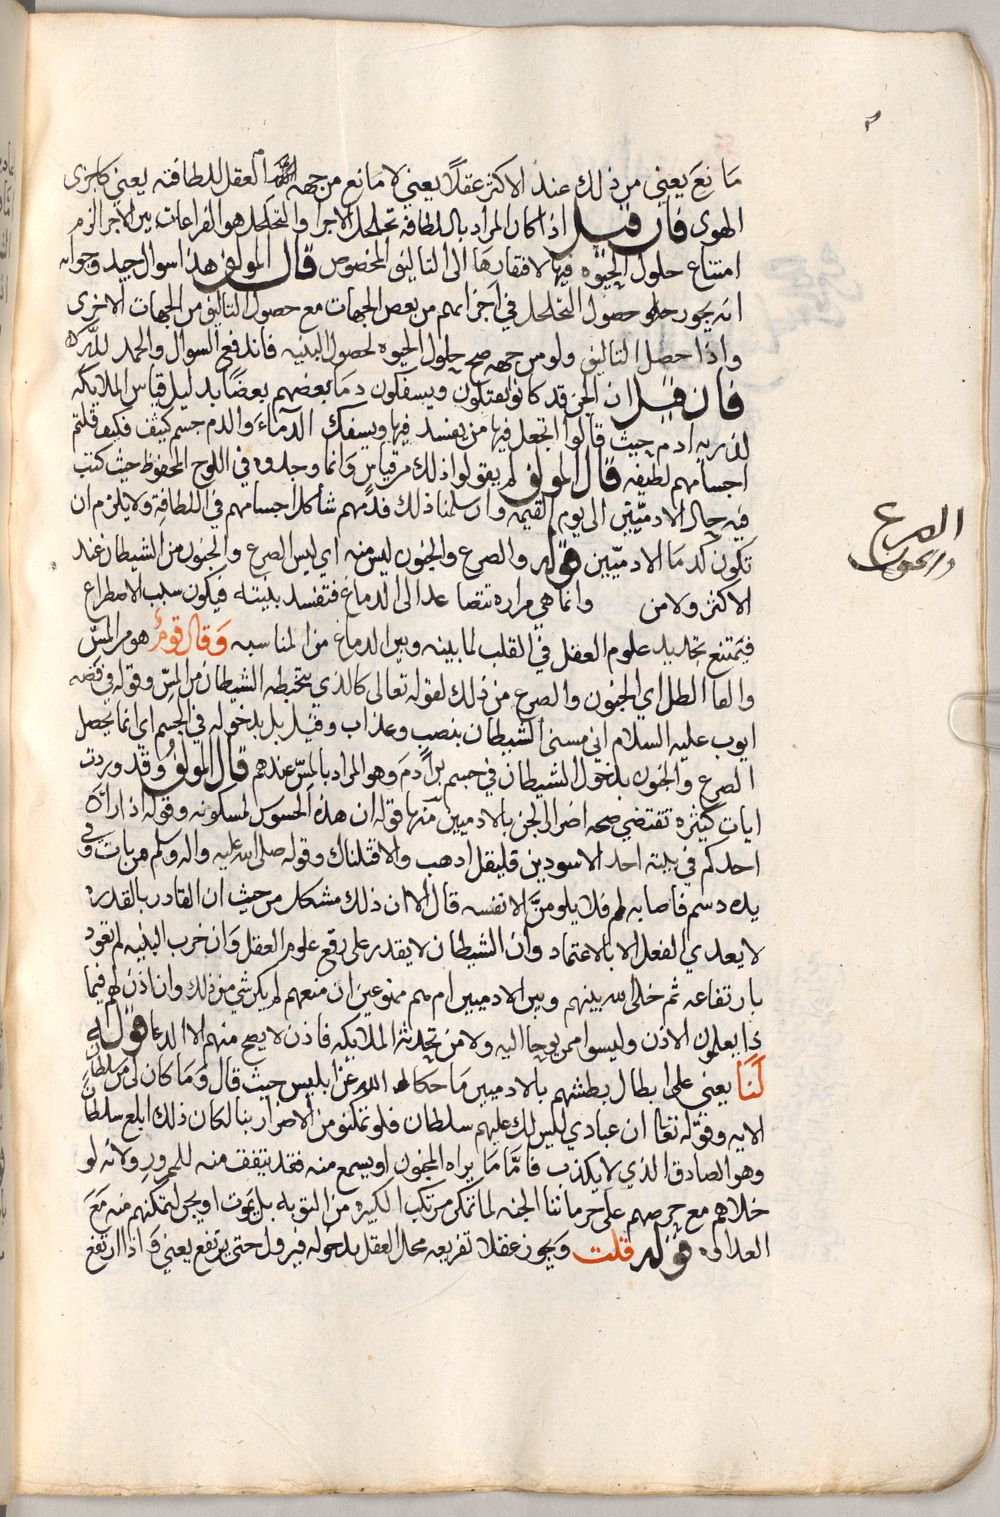 مانع يعني من ذلك عند الاكثر عقلًا يعني لا مانع من جهة العقل للطافته يعني كاجزى
الهوى فان قيل اذا كان المراد باللطافه تخلخل الاجزا والتخلخل هو الفراغات بين الاجزا لزم
امتناع حلول الحيوه فيها لافتقارها الى التاليف المخصوص قال المولف هذا سوال جيد وجوابه
انه يجوز حصول التخلخل في اجزايهم من بعض الجهات مع حصول التاليف من الجهات الاخرى
واذا حصل التاليف ولو من جهه صح حلول الحيوه لحصول البنيه فاندفع السوال والحمد لله
فان قيل ان الجن قد كانوا يقتلون ويسفكون دما بعضهم بعضًا بدليل قياس الملايكه
لذريه ادم حيث قالوا اتجعل فيها من يفسد فيها ويسفك الدمآء والدم جسم كثيف فكيف قلتم
اجسامهم لطيفه قال المولف لم يقولوا ذلك من قياس وانما وجدوه في اللوح المحفوظ حيث كتب
فيه حال الادميين الى يوم القيمه وان سلمنا ذلك فدمهم شاكل اجسامهم في اللطافة ولا يلزم ان
تكون كدما الادميين قوله والصرع والجنون ليس منه اي ليس الصرع والجنون من الشيطان عند
الاكثر ولا من وانما هي مراره تتصاعد الى الدماغ فتفسد بنيته فيكون سبب الاصطراع
فيمتنع تجديد علوم العقل في القلب لما بينه وبين الدماغ من المناسبه وقال قوم هو من المس
اي الجنون والصرع من ذلك لقوله تعالى كالذي يتخبطه الشيطان من المس وقوله في قصه
ايوب عليه السلام اني مسني الشيطان بنصب وعذاب وقيل بل بدخوله في الجسم اي انما يحصل
الصرع والجنون بدخول الشيطان في جسم بن آدم وهو المراد بالمس عندهم قال المولف وقد وردت
ايات كثيره تقتضي صحه اضرار الجن بالادميين منها قوله ان هذه الحشوش لمسكونه وقوله اذا راى
احدكم في بيته احد الاسودين فليقل اذهب والا قتلناك وقوله صلى الله عليه واله وسلم من بات وفي
يده دسم فاصابه لمم فلا يلومن الا نفسه قال الا ان ذلك مشكل من حيث ان القادر بالقدره
لا يعدي الفعل الا بالاعتماد وان الشيطان لا يقدر على رفع علوم العقل وان خرب البنيه لم تعود
بارتفاعه ثم خلى الله بينهم وبين الادميين ام هم ممنوعين ان منعهم لم يكن شي من ذلك وان اذن لهم فيما
ذا يعلمون الاذن وليسوا ممن يوحا اليه ولا من تحدثه الملايكه فاذن لا يصح منهم الا الدعا قوله
لنا يعني على ابطال بطشهم بالادميين ما حكا الله عن ابليس حيث قال وما كان لي من سلطان
الايه وقوله تعالى ان عبادي ليس لك عليهم سلطان فلو تمكنو من الاضرار بنا لكان ذلك ابلغ سلطان
وهو الصادق الذي لا يكذب فاما ما يراه المجنون او يسمع منه فقد ولانه لو
خلاهم مع حرصهم على حرماننا الجنه لما تمكن مرتكب الكبيره من التوبه بل يموت او يجن لتمكنهم منه مع
العداوه قوله قلت ويجوز عقلا تفريعه محال العقل بدخوله فيزول حتى يرتفع يعني فاذا ارتفع
الصرع
والجنون